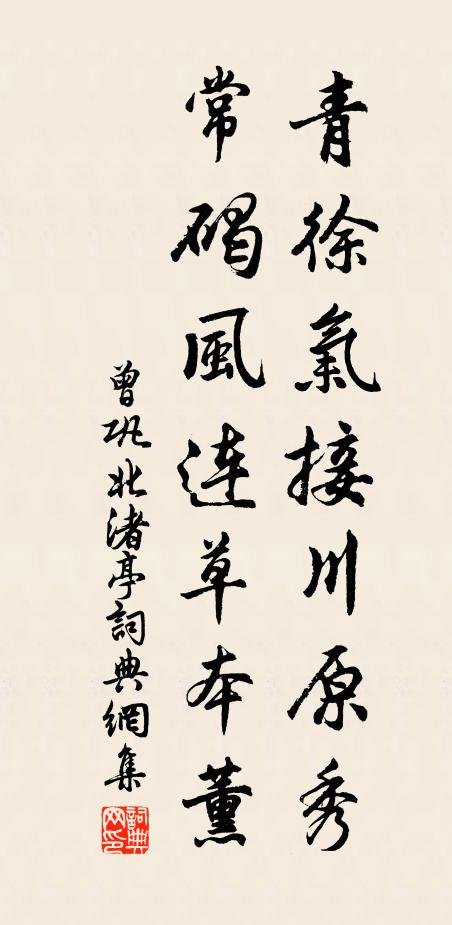 青徐氣接川原秀
常碣風連草本薰
曾巩北渚亭詞典網集
詞典網印